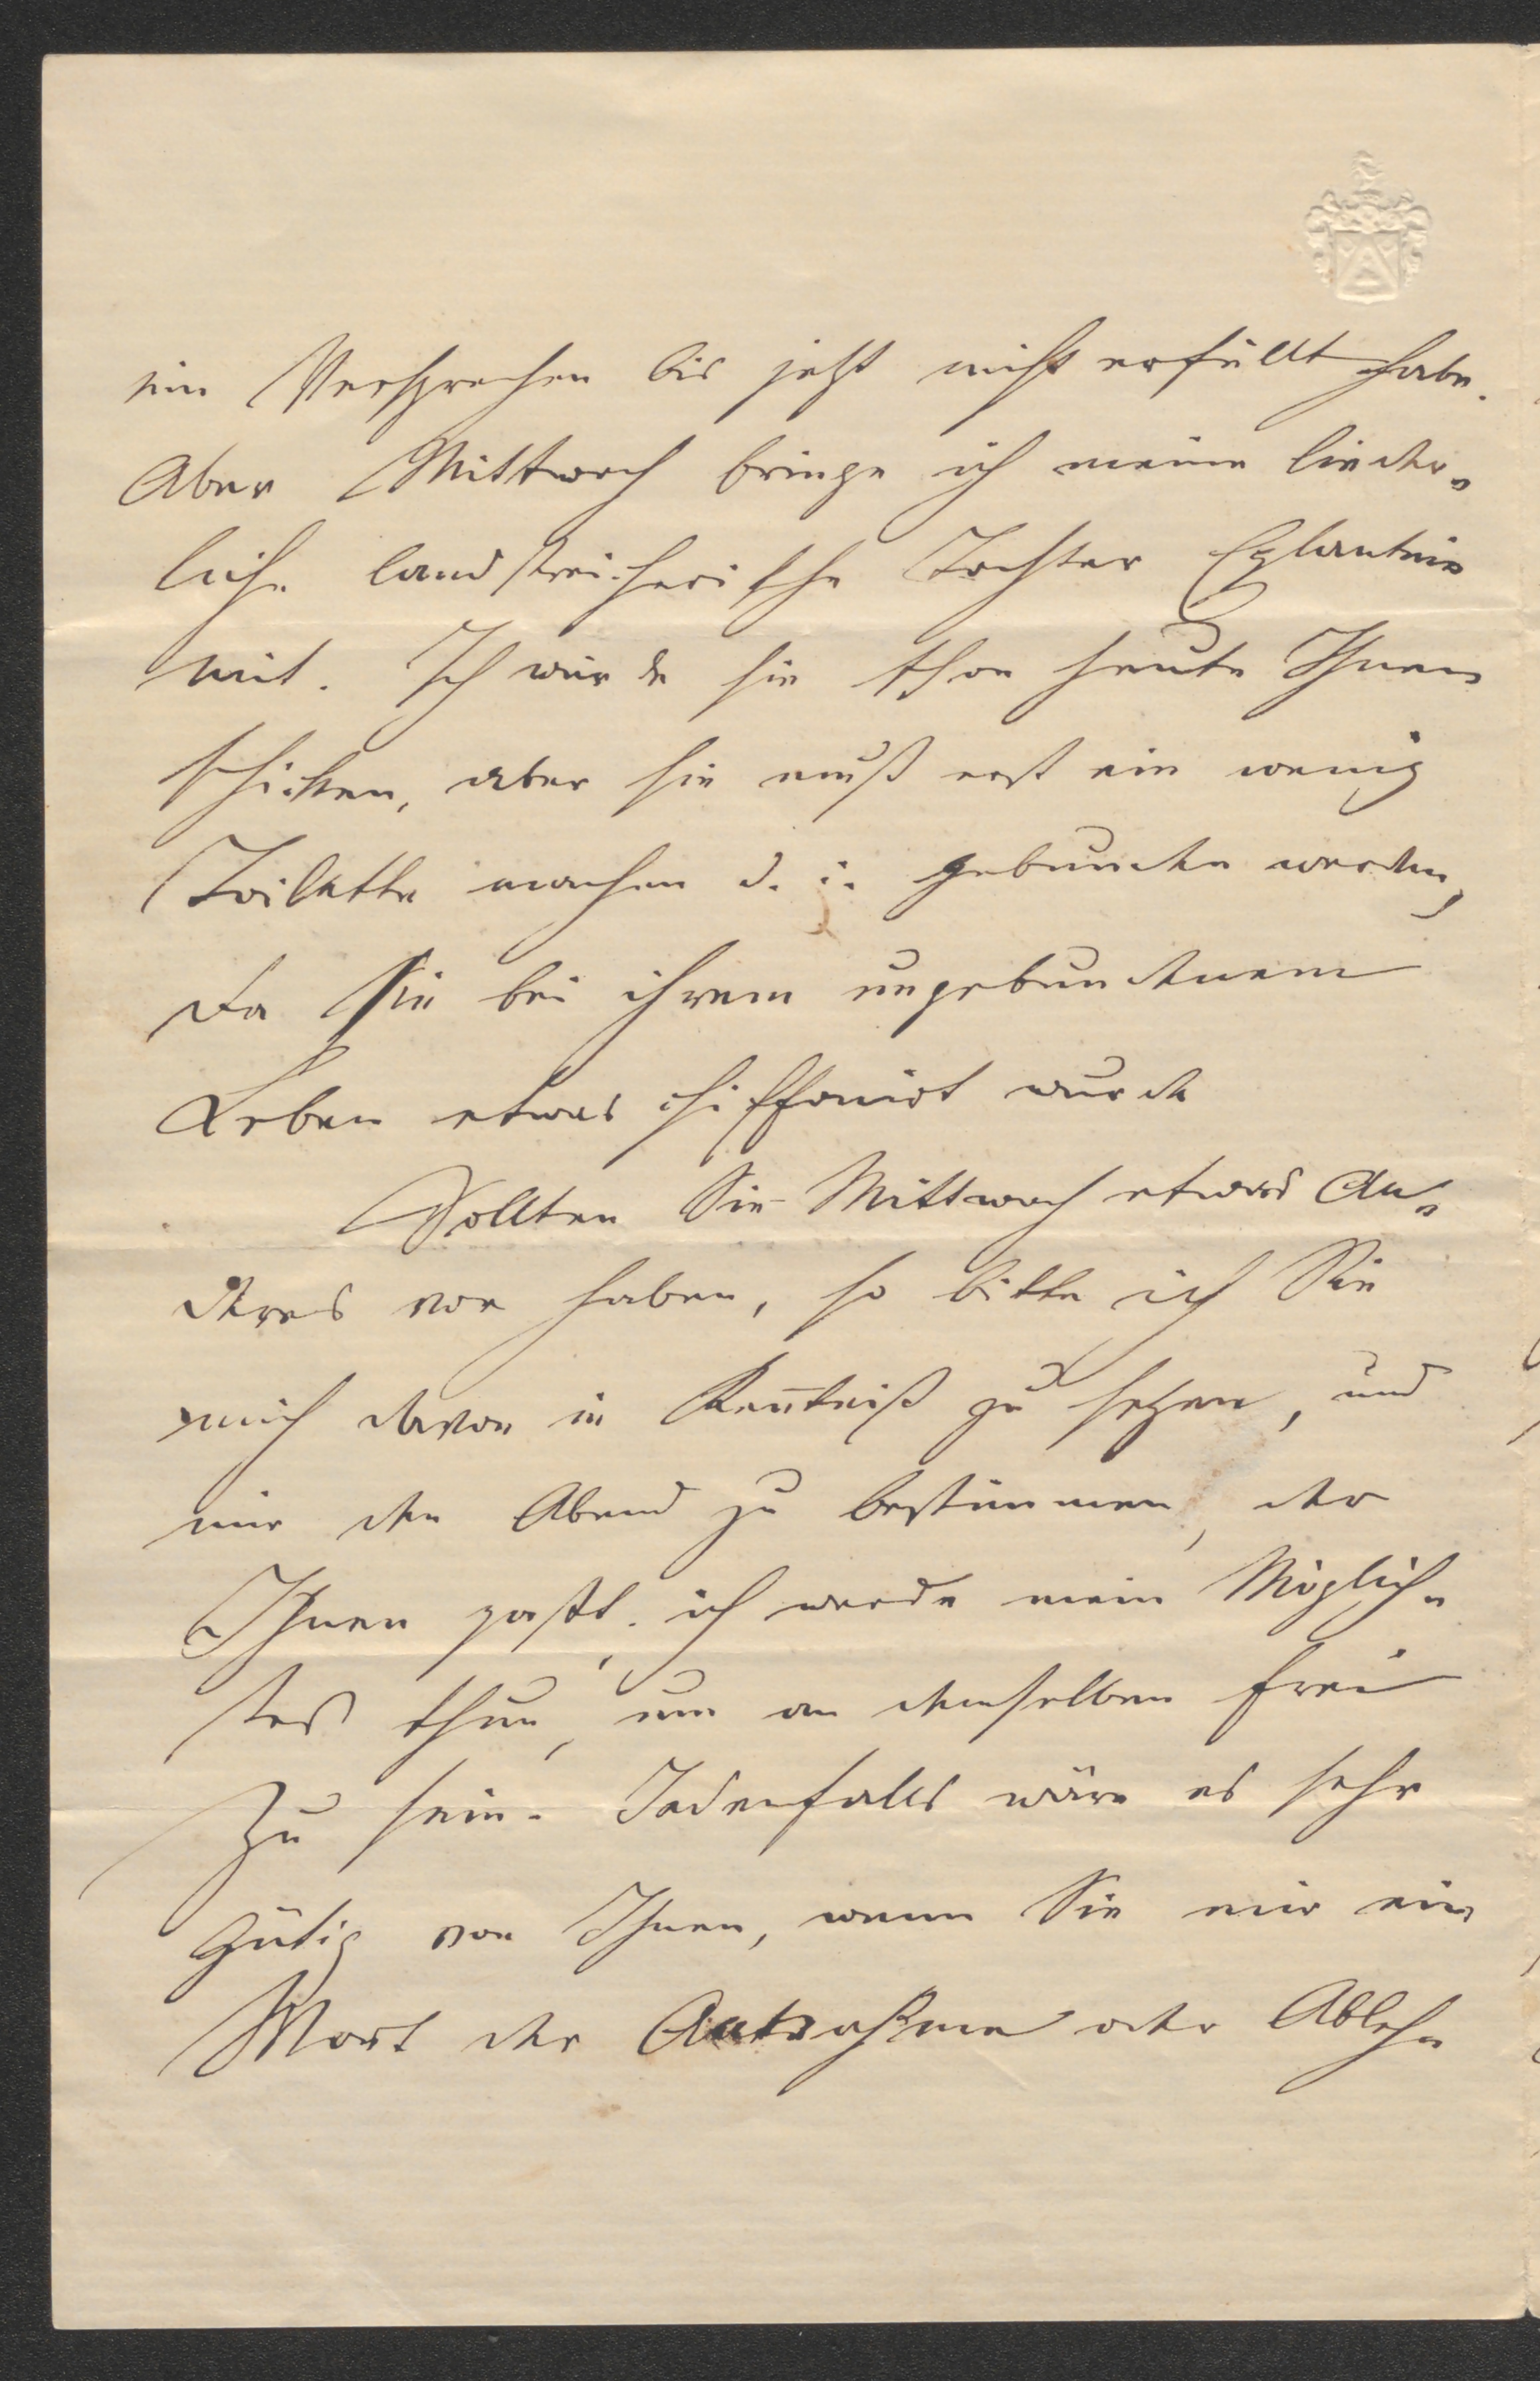 ein Versprechen bis jetzt nicht erfüllt habe.
Aber Mittwoch bringe ich meine lieder⸗
liche landstreicherische Tochter Eglantine
mit. Ich würde sie schon heute Ihnen
schicken, aber sie muß erst ein wenig
Toilette machen d. i. gebunden werden,
da sie bei ihrem ungebundenem
Leben etwas chiffonirt wurde
Sollten Sie Mittwoch etwas An⸗
deres vor haben, so bitte ich Sie
mich davon in Kenntniß zu setzen, und
mir den Abend zu bestimmen, der
Ihnen paßt, ich werde mein Möglich⸗
stes thun, um an demselben frei
zu sein. Jedenfalls wäre es sehr
gütig von Ihnen, wenn Sie mir ein
Wort der Annahme oder Ableh⸗